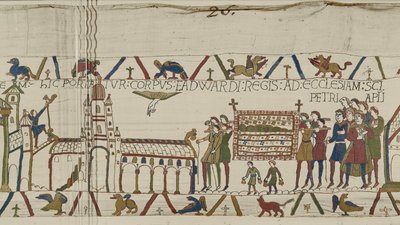 26.
HIC PORTATVR: CORPVS: EADWARDI: REGIS: AD: ECCLESIAM: SCI
PETRI APLI